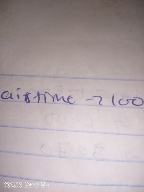 airtime → 100